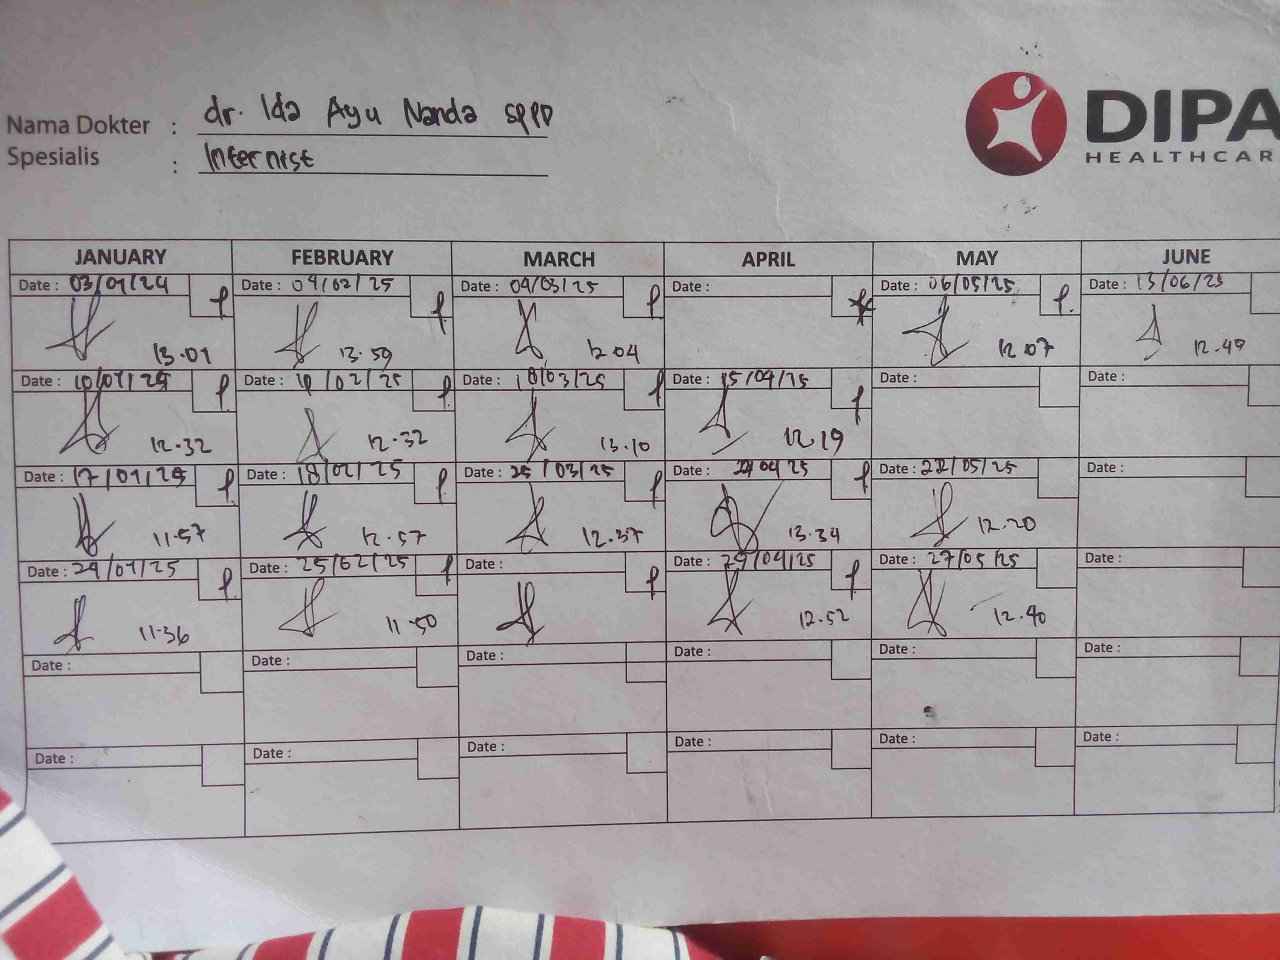 Nama Dokter : dr. Ida Ayu Nanda SPPD
Spesialis : Internist
DIPA
HEALTHCAR
JANUARY FEBRUARY MARCH APRIL MAY JUNE
Date : 03/01/24 Date : 04/02/25 Date : 04/03/25 Date : Date : 06/05/25 Date : 13/06/25
13.01 13.59 12.04 12.07 12.49
Date : 10/01/25 Date : 10/02/25 Date : 18/03/25 Date : 15/04/25 Date : Date :
12.32 12.32 13.10 12.19
Date : 17/01/25 Date : 18/02/25 Date : 25/03/25 Date : 22/04/25 Date : 22/05/25 Date :
11.57 12.57 12.37 13.34 12.20
Date : 24/01/25 Date : 25/02/25 Date : Date : 29/04/25 Date : 27/05/25 Date :
11.36 11.50 12.52 12.40
Date : Date : Date : Date : Date : Date :
Date : Date : Date : Date : Date : Date :